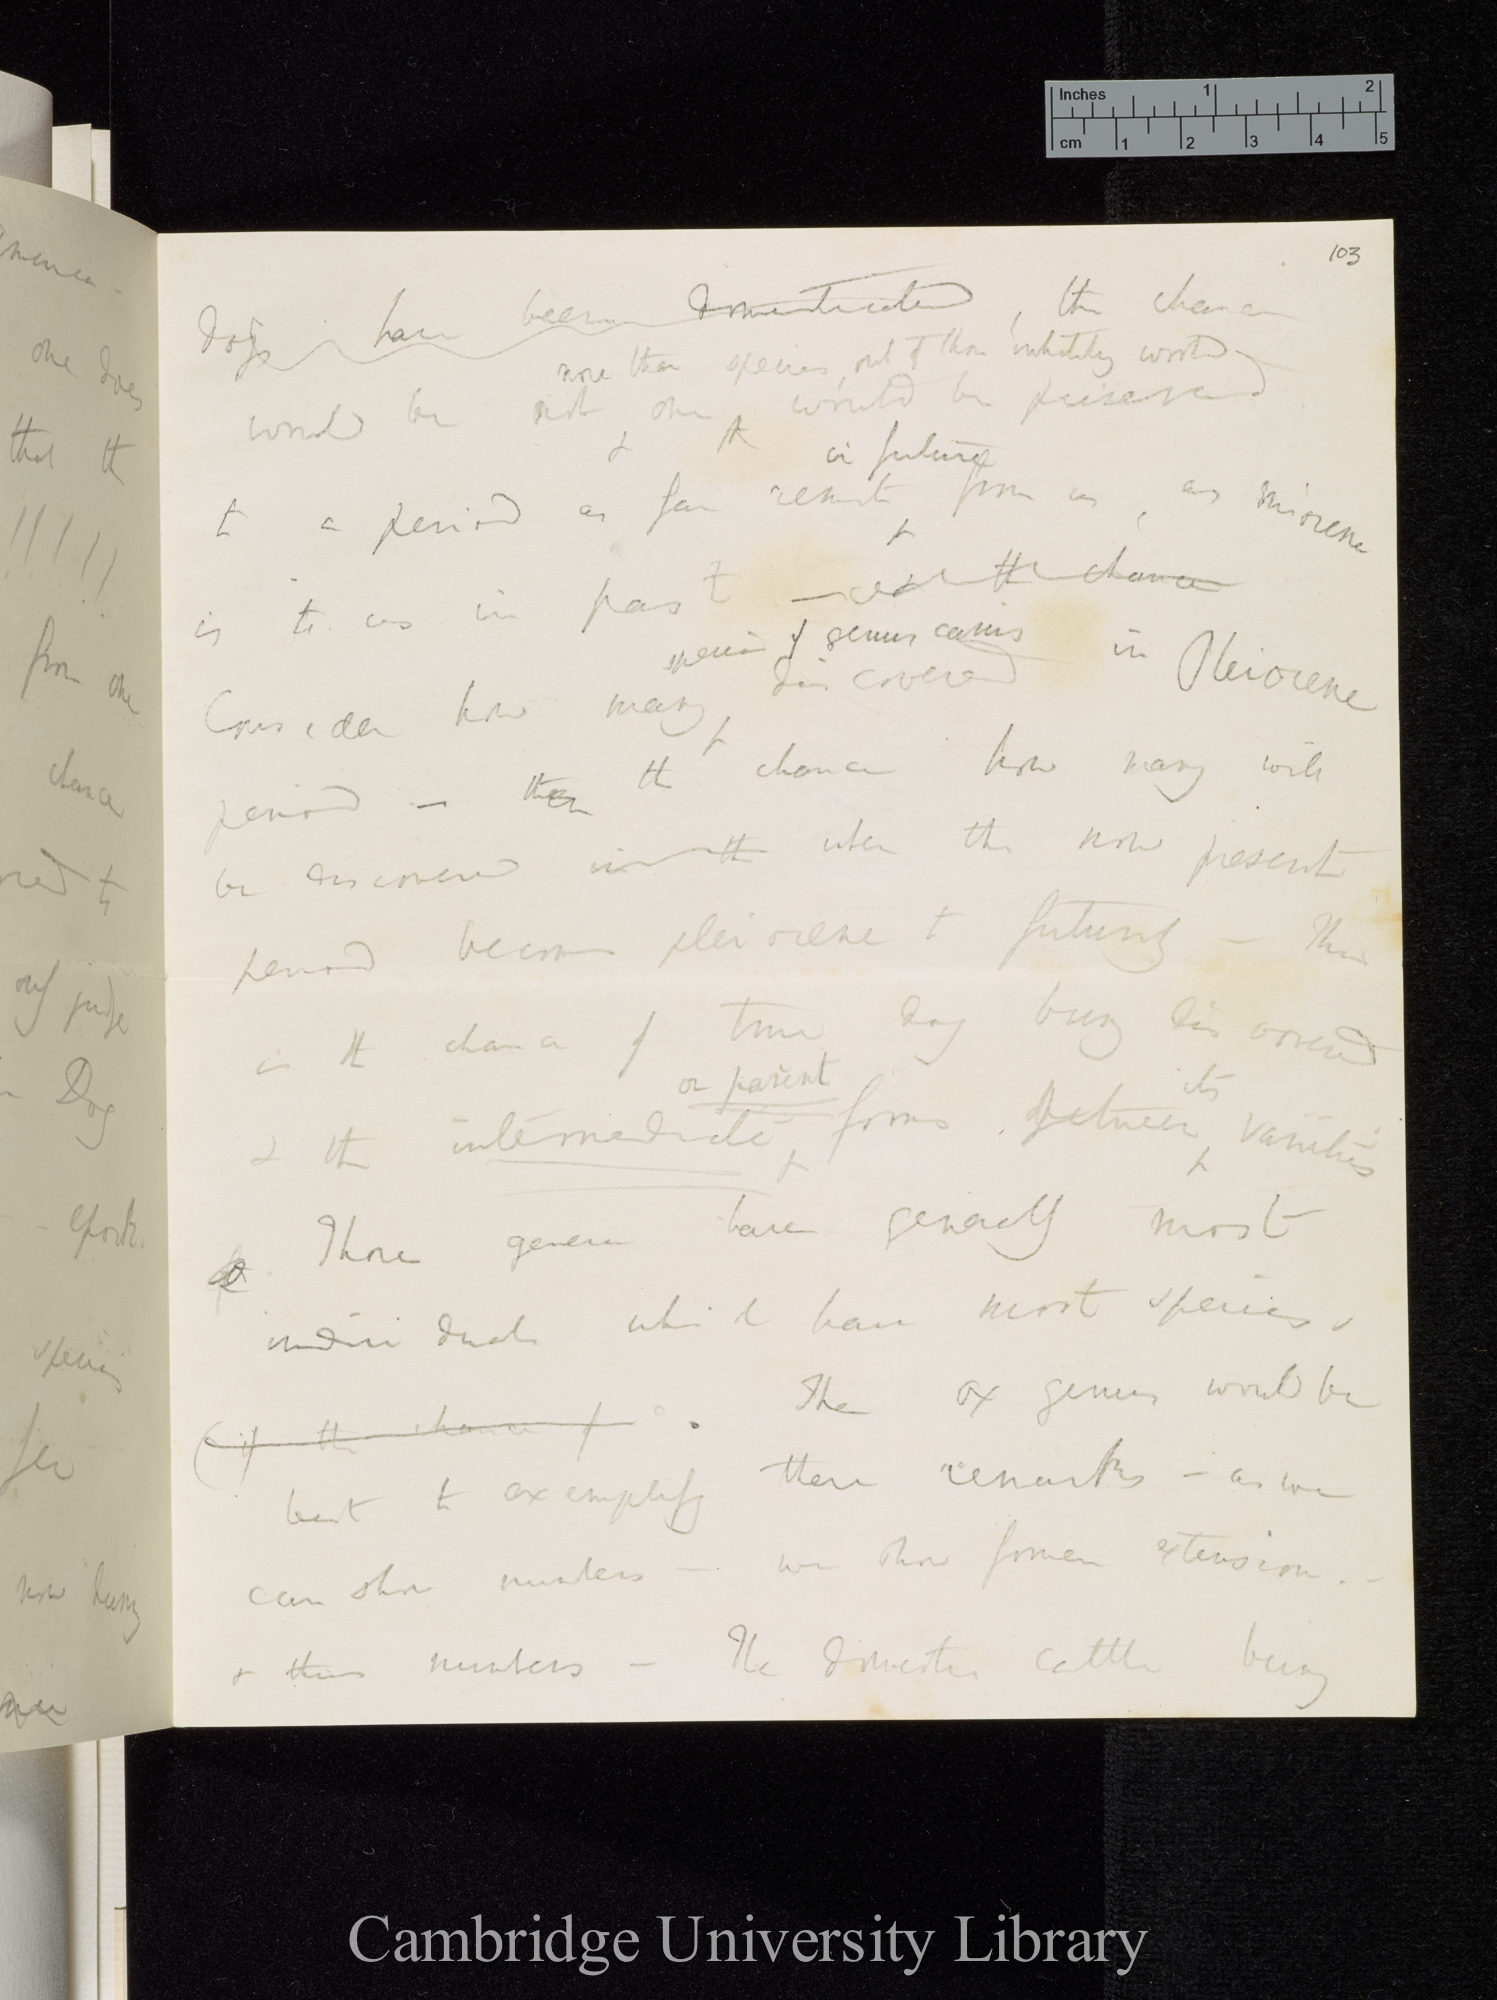 Inches 1 2
cm 1 2 3 4 5
103
America -
one does
that th
!!!!!
from one
chance
to
judge
Dog
epoch.
species
few
now being
Dogs have been domesticated, the chance
more than species, out of those inhabiting world
would be not one, would be preserved
& th
in future
to a period as far remote from us, as Miocene
is to us in past — the chance
species of genus canis
Consider how many discovered in Pleiocene
period — then th chance how many will
be discovered in th when the now present
period becomes pleiocene to futurity — This
is th chance of true dog being discovered
or parent its
& th intermediate forms between varieties
Those genera have generally most
individuals which have most species,
(if the chance of . The ox genus would be
best to exemplify these remarks — as we
can show numbers — we show former extension. -
& thus numbers — The domestic cattle being
Cambridge University Library